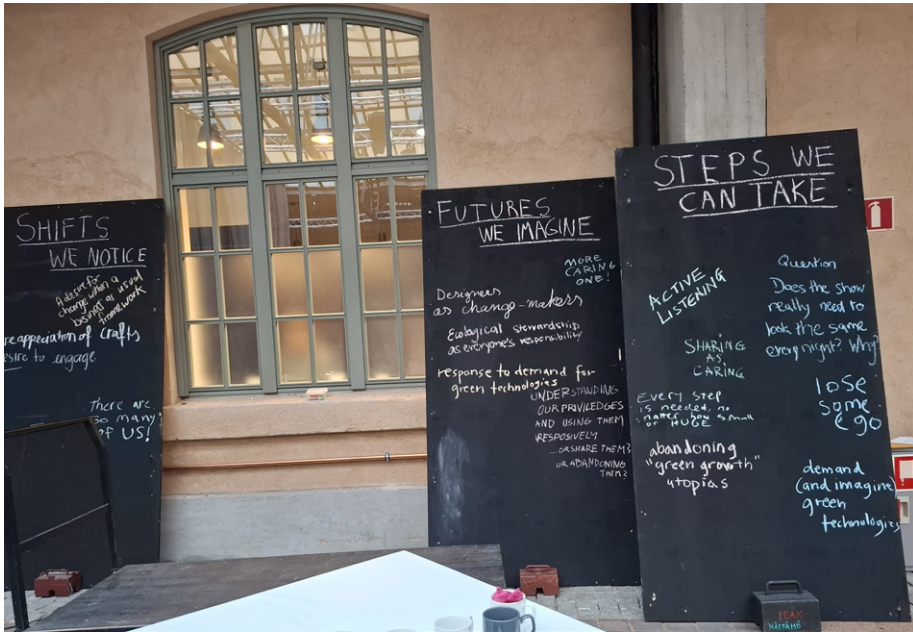 SHIFTS
WE NOTICE
A desire for
change when a
business as usual
framework
reappreciation of crafts
desire to engage
there are
so many
of US!
FUTURES
WE IMAGINE
MORE
CARING
ONE!
Designers
as change-makers
Ecological stewardship
as everyone's responsibility
response to demand for
green technologies
UNDERSTANDING
OUR PRIVILEDGES
AND USING THEM
RESPOSIVELY
...OR SHARE THEM?
OR ABANDONING
THEM?
STEPS WE
CAN TAKE
ACTIVE
LISTENING
SHARING
AS
CARING
EVERY STEP
IS NEEDED, NO
MATTER HOW SMALL
OR HUGE
abandoning
"green growth"
utopias
Question
Does the show
really need to
look the same
every night? Why?
lose
some
ego
demand
(and imagine)
green
technologies
TEAK
NÄTTÄMÖ